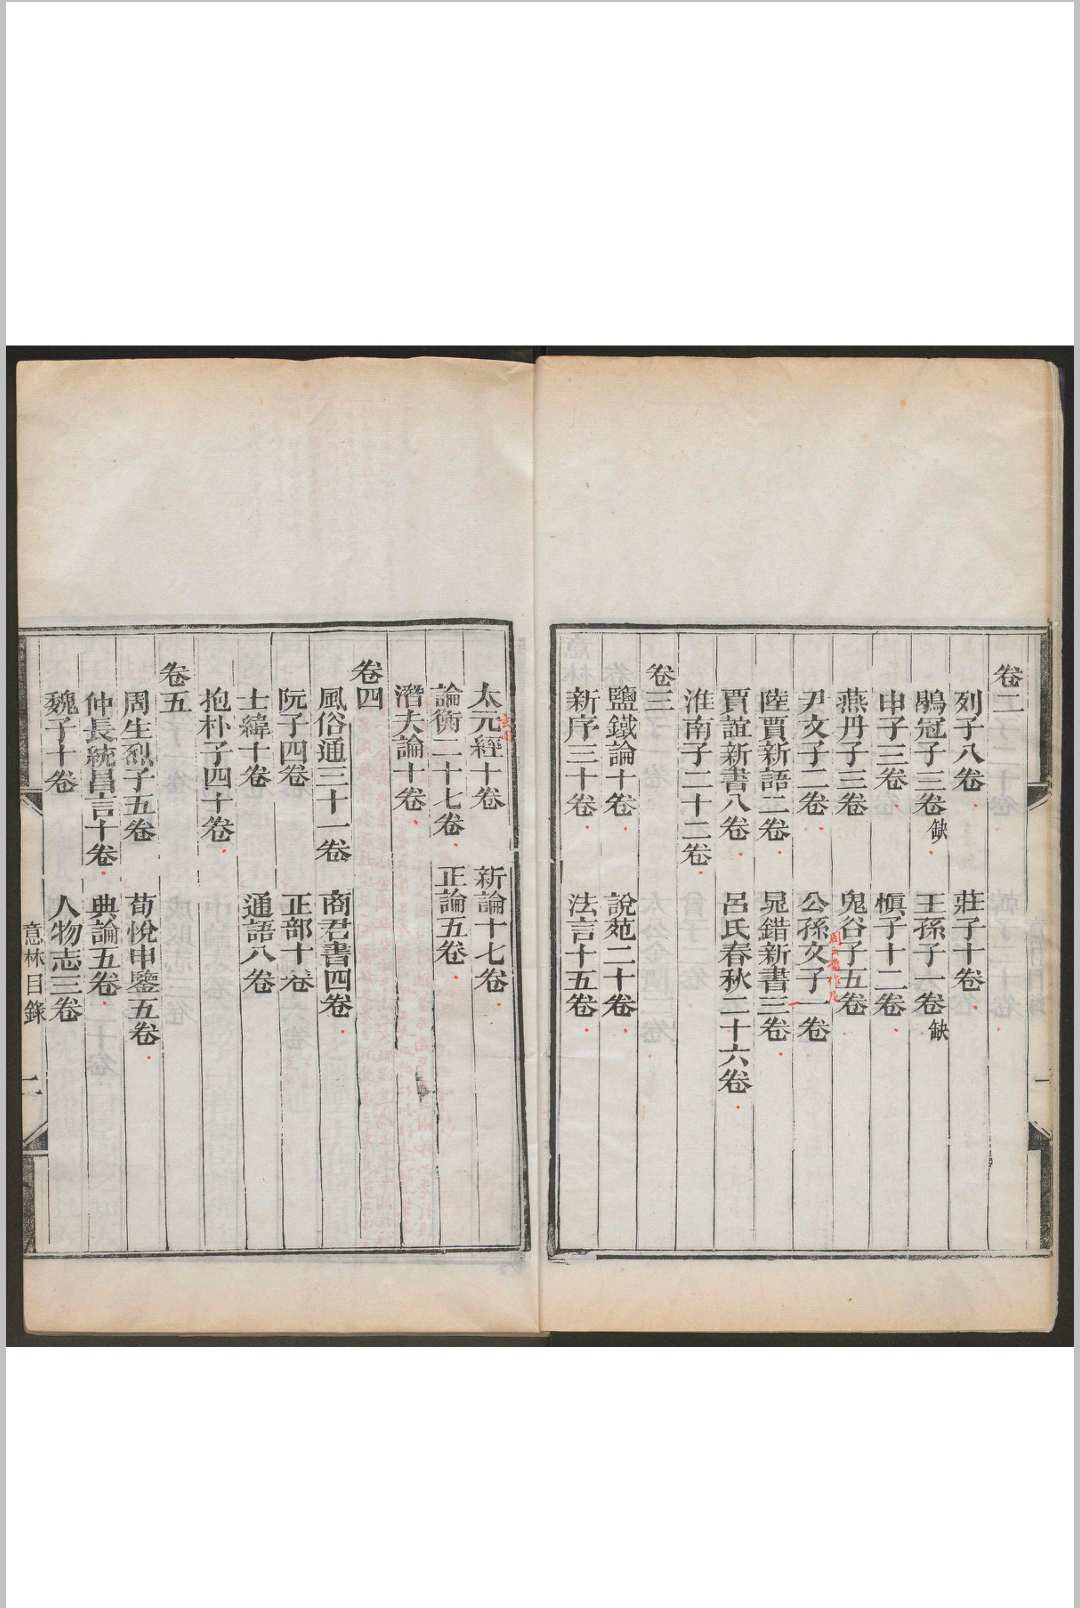 卷二
列子八卷　莊子十卷
鶡冠子三卷缺　王孫子一卷缺
申子三卷　慎子十二卷
燕丹子三卷　鬼谷子五卷
尹文子二卷　公孫文子一卷
陸賈新語二卷　晁錯新書三卷
賈誼新書八卷　呂氏春秋二十六卷
淮南子二十二卷
卷三
鹽鐵論十卷　說苑二十卷
新序三十卷　法言十五卷
太元經十卷　新論十七卷
論衡二十七卷　正論五卷
潛夫論十卷
卷四
風俗通三十一卷　商君書四卷
阮子四卷　正部十卷
士緯十卷　通語八卷
抱朴子四十卷
卷五
周生烈子五卷　荀悅申鑒五卷
仲長統昌言十卷　典論五卷
魏子十卷　人物志三卷
意林目錄